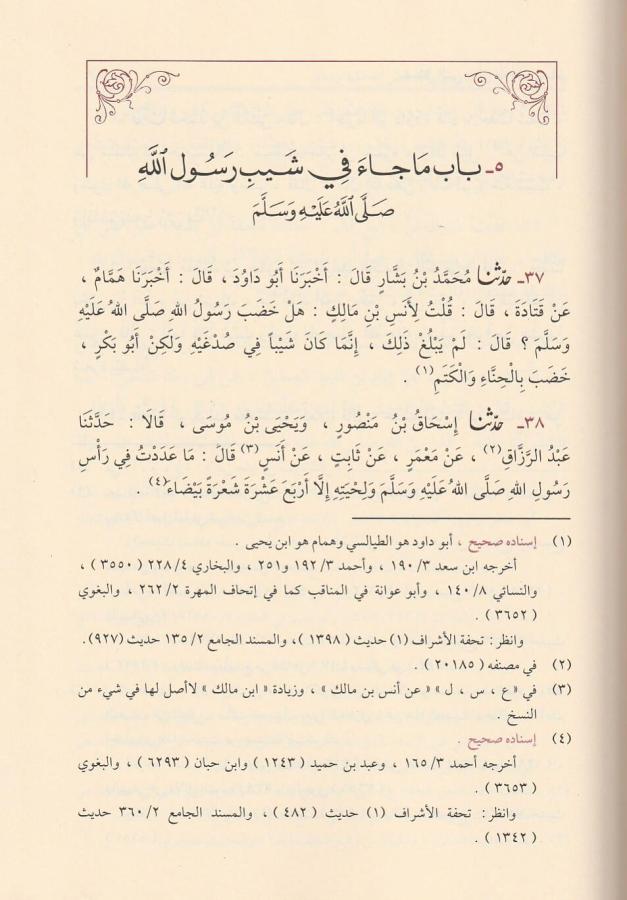 ٥ـ بَاب مَا جَاءَ فِي شَيبِ رَسُول ٱللَّهِ
صَلَّى ٱللَّهُ عَلَيْهِ وَسَلَّمَ
٣٧ـ حدّثنا مُحَمَّدُ بْنُ بَشَّارٍ قَالَ : أَخْبَرَنَا أَبُو دَاوُدَ ، قَالَ : أَخْبَرَنَا هَمَّامٌ ،
عَنْ قَتَادَةَ ، قَالَ : قُلْتُ لِأَنَسِ بْنِ مَالِكٍ : هَلْ خَضَبَ رَسُولُ اللهِ صَلَّى اللهُ عَلَيْهِ
وَسَلَّمَ ؟ قَالَ : لَمْ يَبْلُغْ ذَلِكَ ، إِنَّمَا كَانَ شَيْباً فِي صُدْغَيْهِ وَلَكِنْ أَبُو بَكْرٍ ،
خَضَبَ بِالْحِنَّاءِ وَالْكَتَمِ(١) .
٣٨ـ حدّثنا إِسْحَاقُ بْنُ مَنْصُورٍ ، وَيَحْيَى بْنُ مُوسَى ، قَالَا : حَدَّثَنَا
عَبْدُ الرَّزَّاقِ(٢) ، عَنْ مَعْمَرٍ ، عَنْ ثَابِتٍ ، عَنْ أَنَسٍ(٣) قَالَ : مَا عَدَدْتُ فِي رَأْسِ
رَسُولِ اللهِ صَلَّى اللهُ عَلَيْهِ وَسَلَّمَ وَلِحْيَتِهِ إِلَّا أَرْبَعَ عَشْرَةَ شَعْرَةً بَيْضَاءَ(٤) .
(١) إسناده صحيح ، أبو داود هو الطيالسي وهمام هو ابن يحيى .
أخرجه ابن سعد ٣/ ١٩٠ ، وأحمد ٣/ ١٩٢ و٢٥١ ، والبخاري ٤/ ٢٢٨ ( ٣٥٥٠ ) ،
والنسائي ٨/ ١٤٠ ، وأبو عوانة في المناقب كما في إتحاف المهرة ٢/ ٢٦٢ ، والبغوي
( ٣٦٥٢ ) .
وانظر: تحفة الأشراف (١) حديث ( ١٣٩٨ )، والمسند الجامع ٢/ ١٣٥ حديث (٩٢٧).
(٢) في مصنفه ( ٢٠١٨٥ ) .
(٣) في « ع ، س ، ل » « عن أنس بن مالك » ، وزيادة « ابن مالك » لاأصل لها في شيء من
النسخ .
(٤) إسناده صحيح .
أخرجه أحمد ٣/ ١٦٥ ، وعبد بن حميد ( ١٢٤٣ ) وابن حبان ( ٦٢٩٣ ) ، والبغوي
( ٣٦٥٣ ) .
وانظر: تحفة الأشراف (١) حديث ( ٤٨٢ ) ، والمسند الجامع ٢/ ٣٦٠ حديث
( ١٣٤٢ ) .